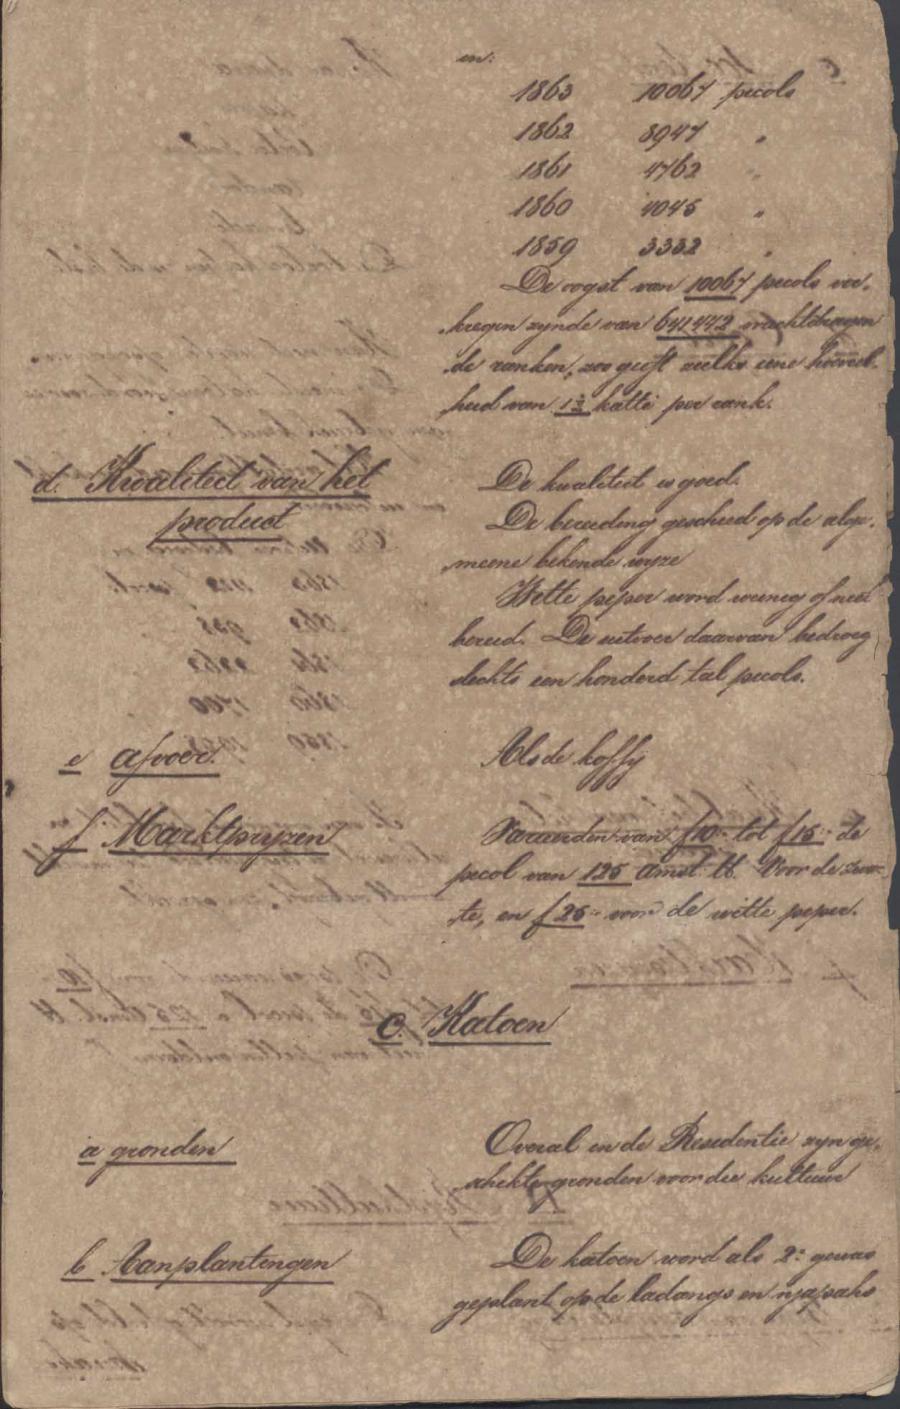 en:
1863 10067 picols
1862 8947 "
1861 4762 "
1860 4045 "
1859 3332 "
De oogst van 10067 picols ver-
kregen zynde van 641442 vruchtdragen
de ranken, zoo geeft welke eene hoeveel-
heid van 1½ katti per rank.
d. Kwaliteit van het
product
De kwaliteit is goed.
De bereiding geschied op de alge-
meene bekende wyze
Witte peper word weinig of niet
bereid. De uitvoer daarvan bedroeg
slechts een honderd tal picols.
e afvoer.
Als de koffij
f. Marktpryzen
Varieerden van f10- tot f15- de
picol van 125 amst. lb. Voor de zwar-
te, en f25- voor de witte peper.
C. Katoen
a gronden
Overal in de Residentie zyn ge-
schikte gronden voor die kultuur
b Aanplantingen
De katoen word als 2e gewas
geplant op de ladangs en njapahs